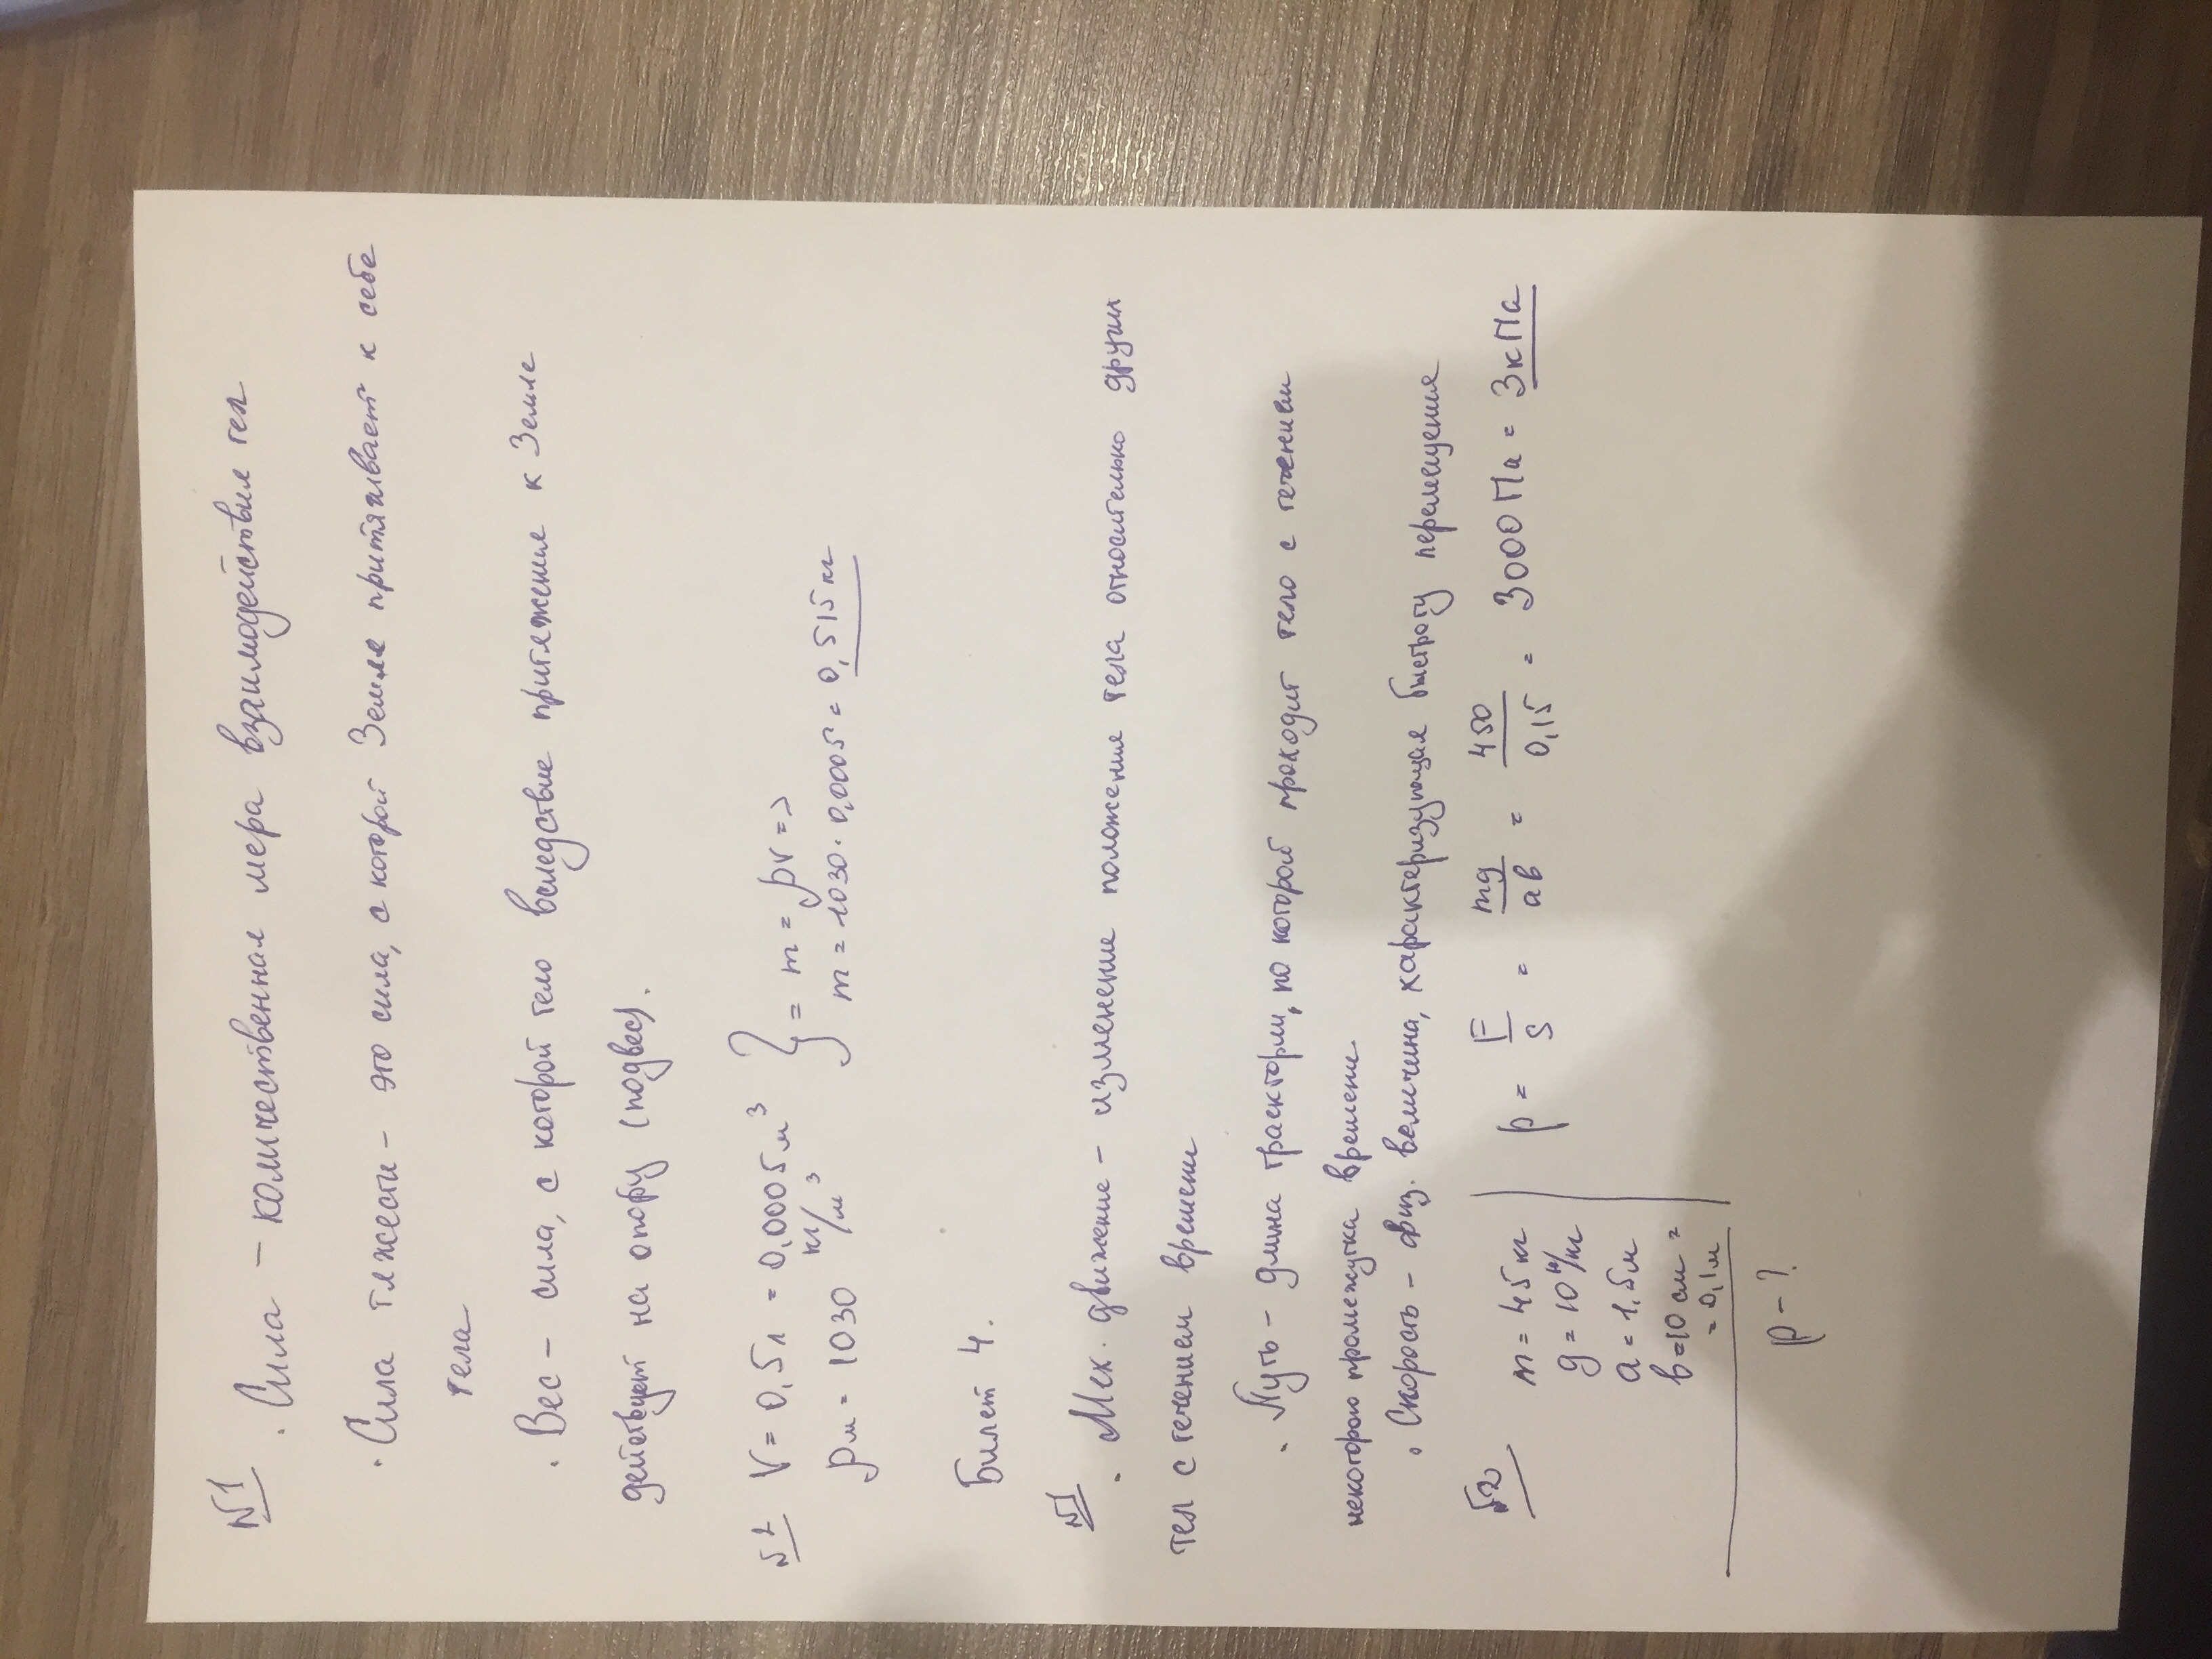 №1 . Сила – количественная мера взаимодействия тел
. Сила тяжести – это сила, с которой Земля притягивает к себе
тела
. Вес – сила, с которой тело вследствие притяжения к Земле
действует на опору (подвес).
№2 V = 0,5л = 0,0005м³ } = m = ρV =>
ρм = 1030 кг/м³ m = 1030 · 0,0005 = 0,515кг
Билет 4.
№1 . Мех. движение – изменение положения тела относительно других
тел с течением времени
. Путь – длина траектории, по которой проходит тело с течением
некоторого промежутка времени
. Скорость – физ. величина, характеризующая быстроту перемещения
№2 m = 45кг p = F/S = mg/ab = 450/0,15 = 3000Па = 3кПа
g = 10 Н/кг
a = 1,5м
b = 10 см =
= 0,1м
p – ?